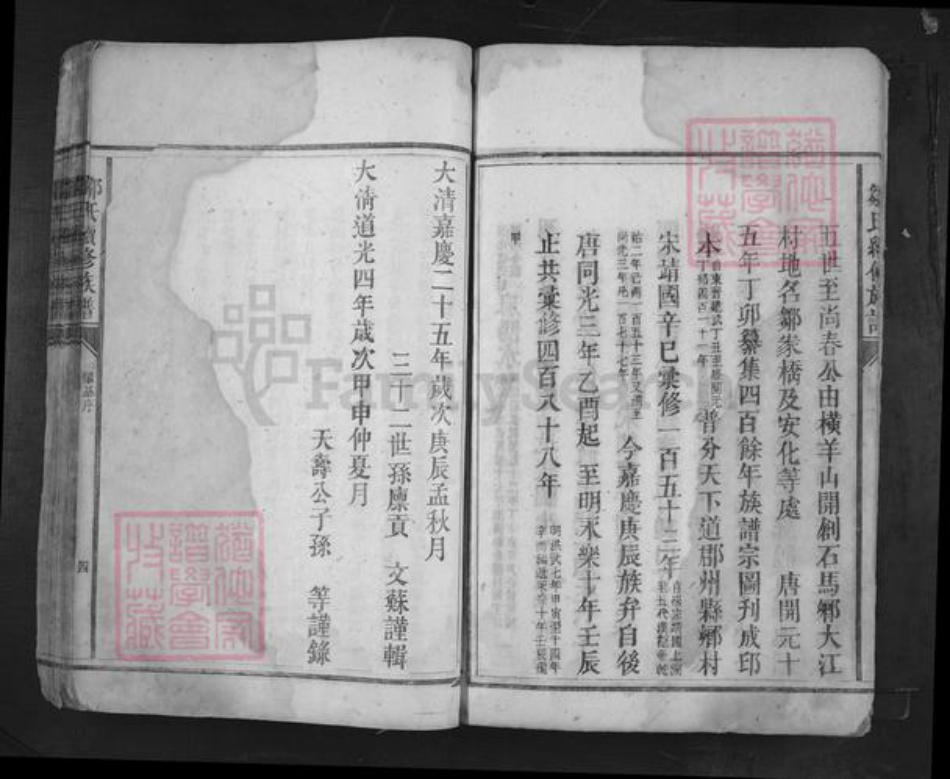 五世至尚春公由橫羊山開創石馬鄉大江
村地名鄒家橋及安化等處 唐開元十
五年丁卯纂集四百餘年族譜宗圖刊成印
本 普分天下道郡州縣鄉村
宋靖國辛巳彙修一百五十二年
今嘉慶庚辰族弁自後
唐同光三年乙酉起 至明永樂十年壬辰
止共彙修四百八十八年
大清嘉慶二十五年歲次庚辰孟秋月
三十二世孫廩貢 文蘇謹輯
大淸道光四年歲次甲申仲夏月
天壽公子孫 等謹錄
氏續修族譜
四
FamilySearch